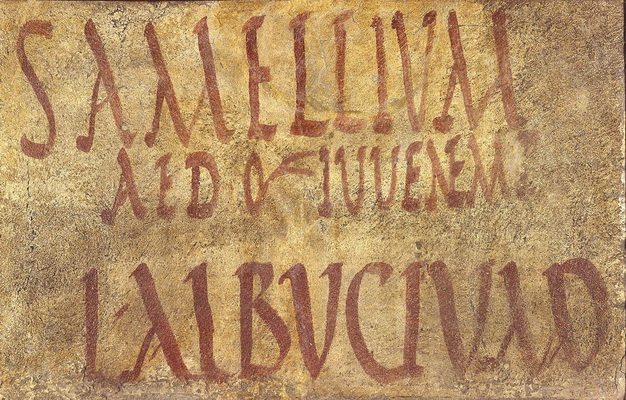 SAMELLIVM
AED IUUENEM
L·ALBVCIVAD